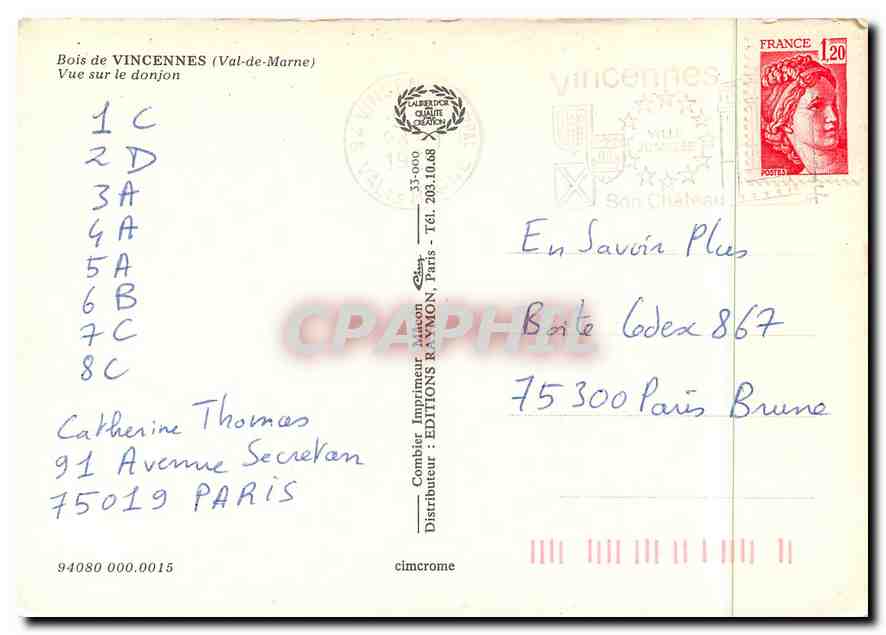 Bois de VINCENNES (Val-de-Marne)
Vue sur le donjon
1 C
2 D
3 A
4 A
5 A
6 B
7 C
8 C
Catherine Thomas
91 Avenue Secretan
75019 PARIS
94080 000.0015
LAURIER D'OR
DE
QUALITÉ
CRÉATION
Combier Imprimeur Macon Cim 33-000
Distributeur : EDITIONS RAYMON, Paris - Tél. 203.10.68
cimcrome
CPAPHIL
94 VINCENNES
Vincennes
VILLE
JUMELÉE
Son Château
FRANCE 1,20
POSTES
En Savoir Plus
Boite Codex 867
75300 Paris Brune